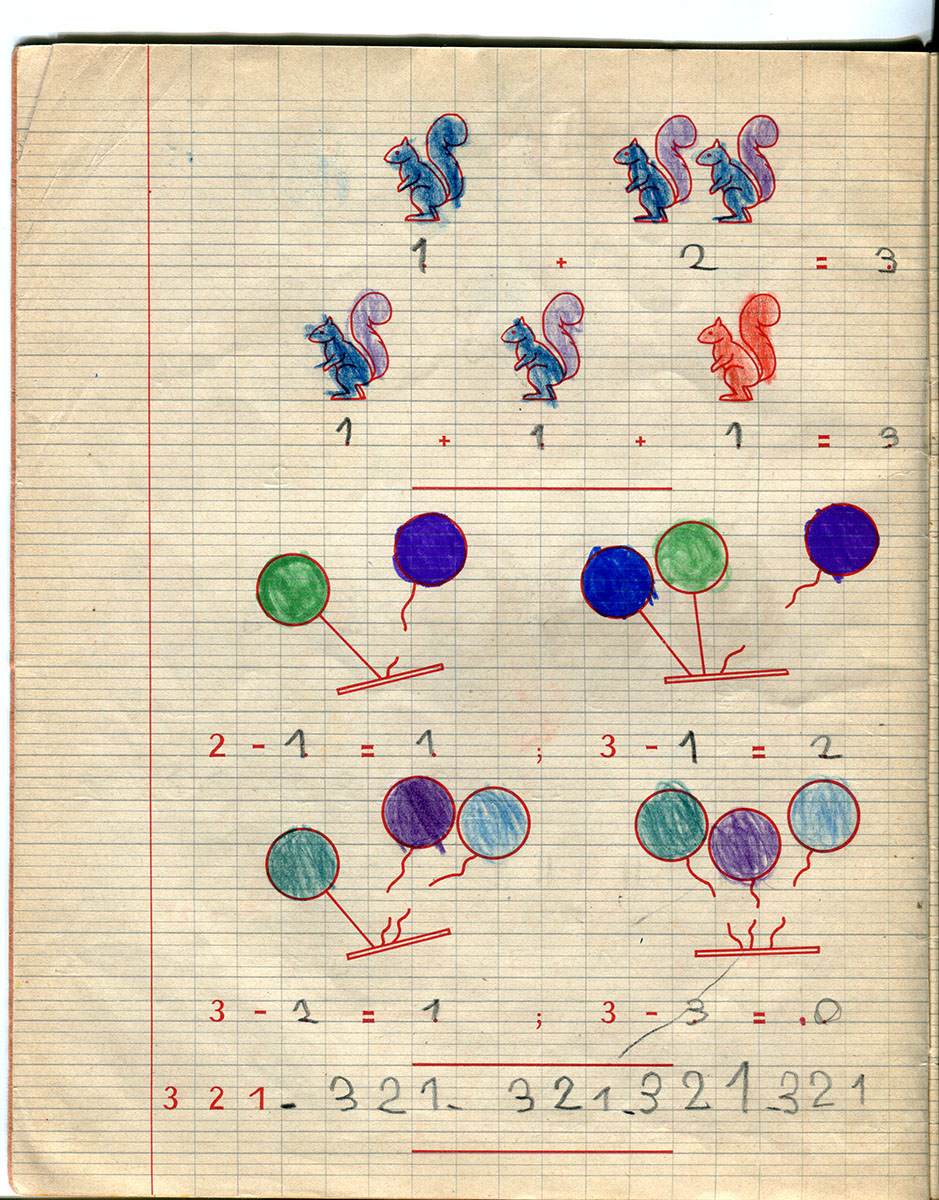 1 + 2 = 3
1 + 1 + 1 = 3
2 - 1 = 1 ; 3 - 1 = 2
3 - 2 = 1 ; 3 - 3 = .0
3 2 1 - 3 2 1 - 3 2 1 - 3 2 1 - 3 2 1